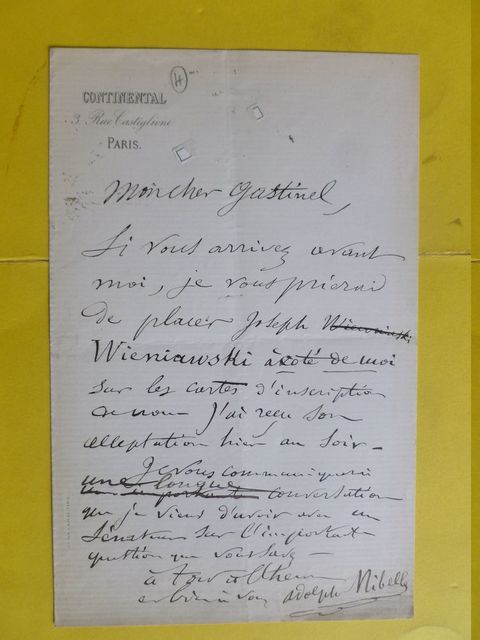 H
CONTINENTAL
3, Rue Castiglione
PARIS.
Mon cher Gastinel,
Si vous arrivez avant
moi, je vous prierai
de placer Joseph Wieniawski
Wieniawski à côté de moi
sur les cartes d'inscription
J'ai reçu son
acceptation hier au soir –
Je vous communiquerai
une longue
conversation
que je viens d'avoir avec un
Sénateur sur l'importante
question que vous savez –
à tout à l'heure
et bien à vous Adolph Nibelle